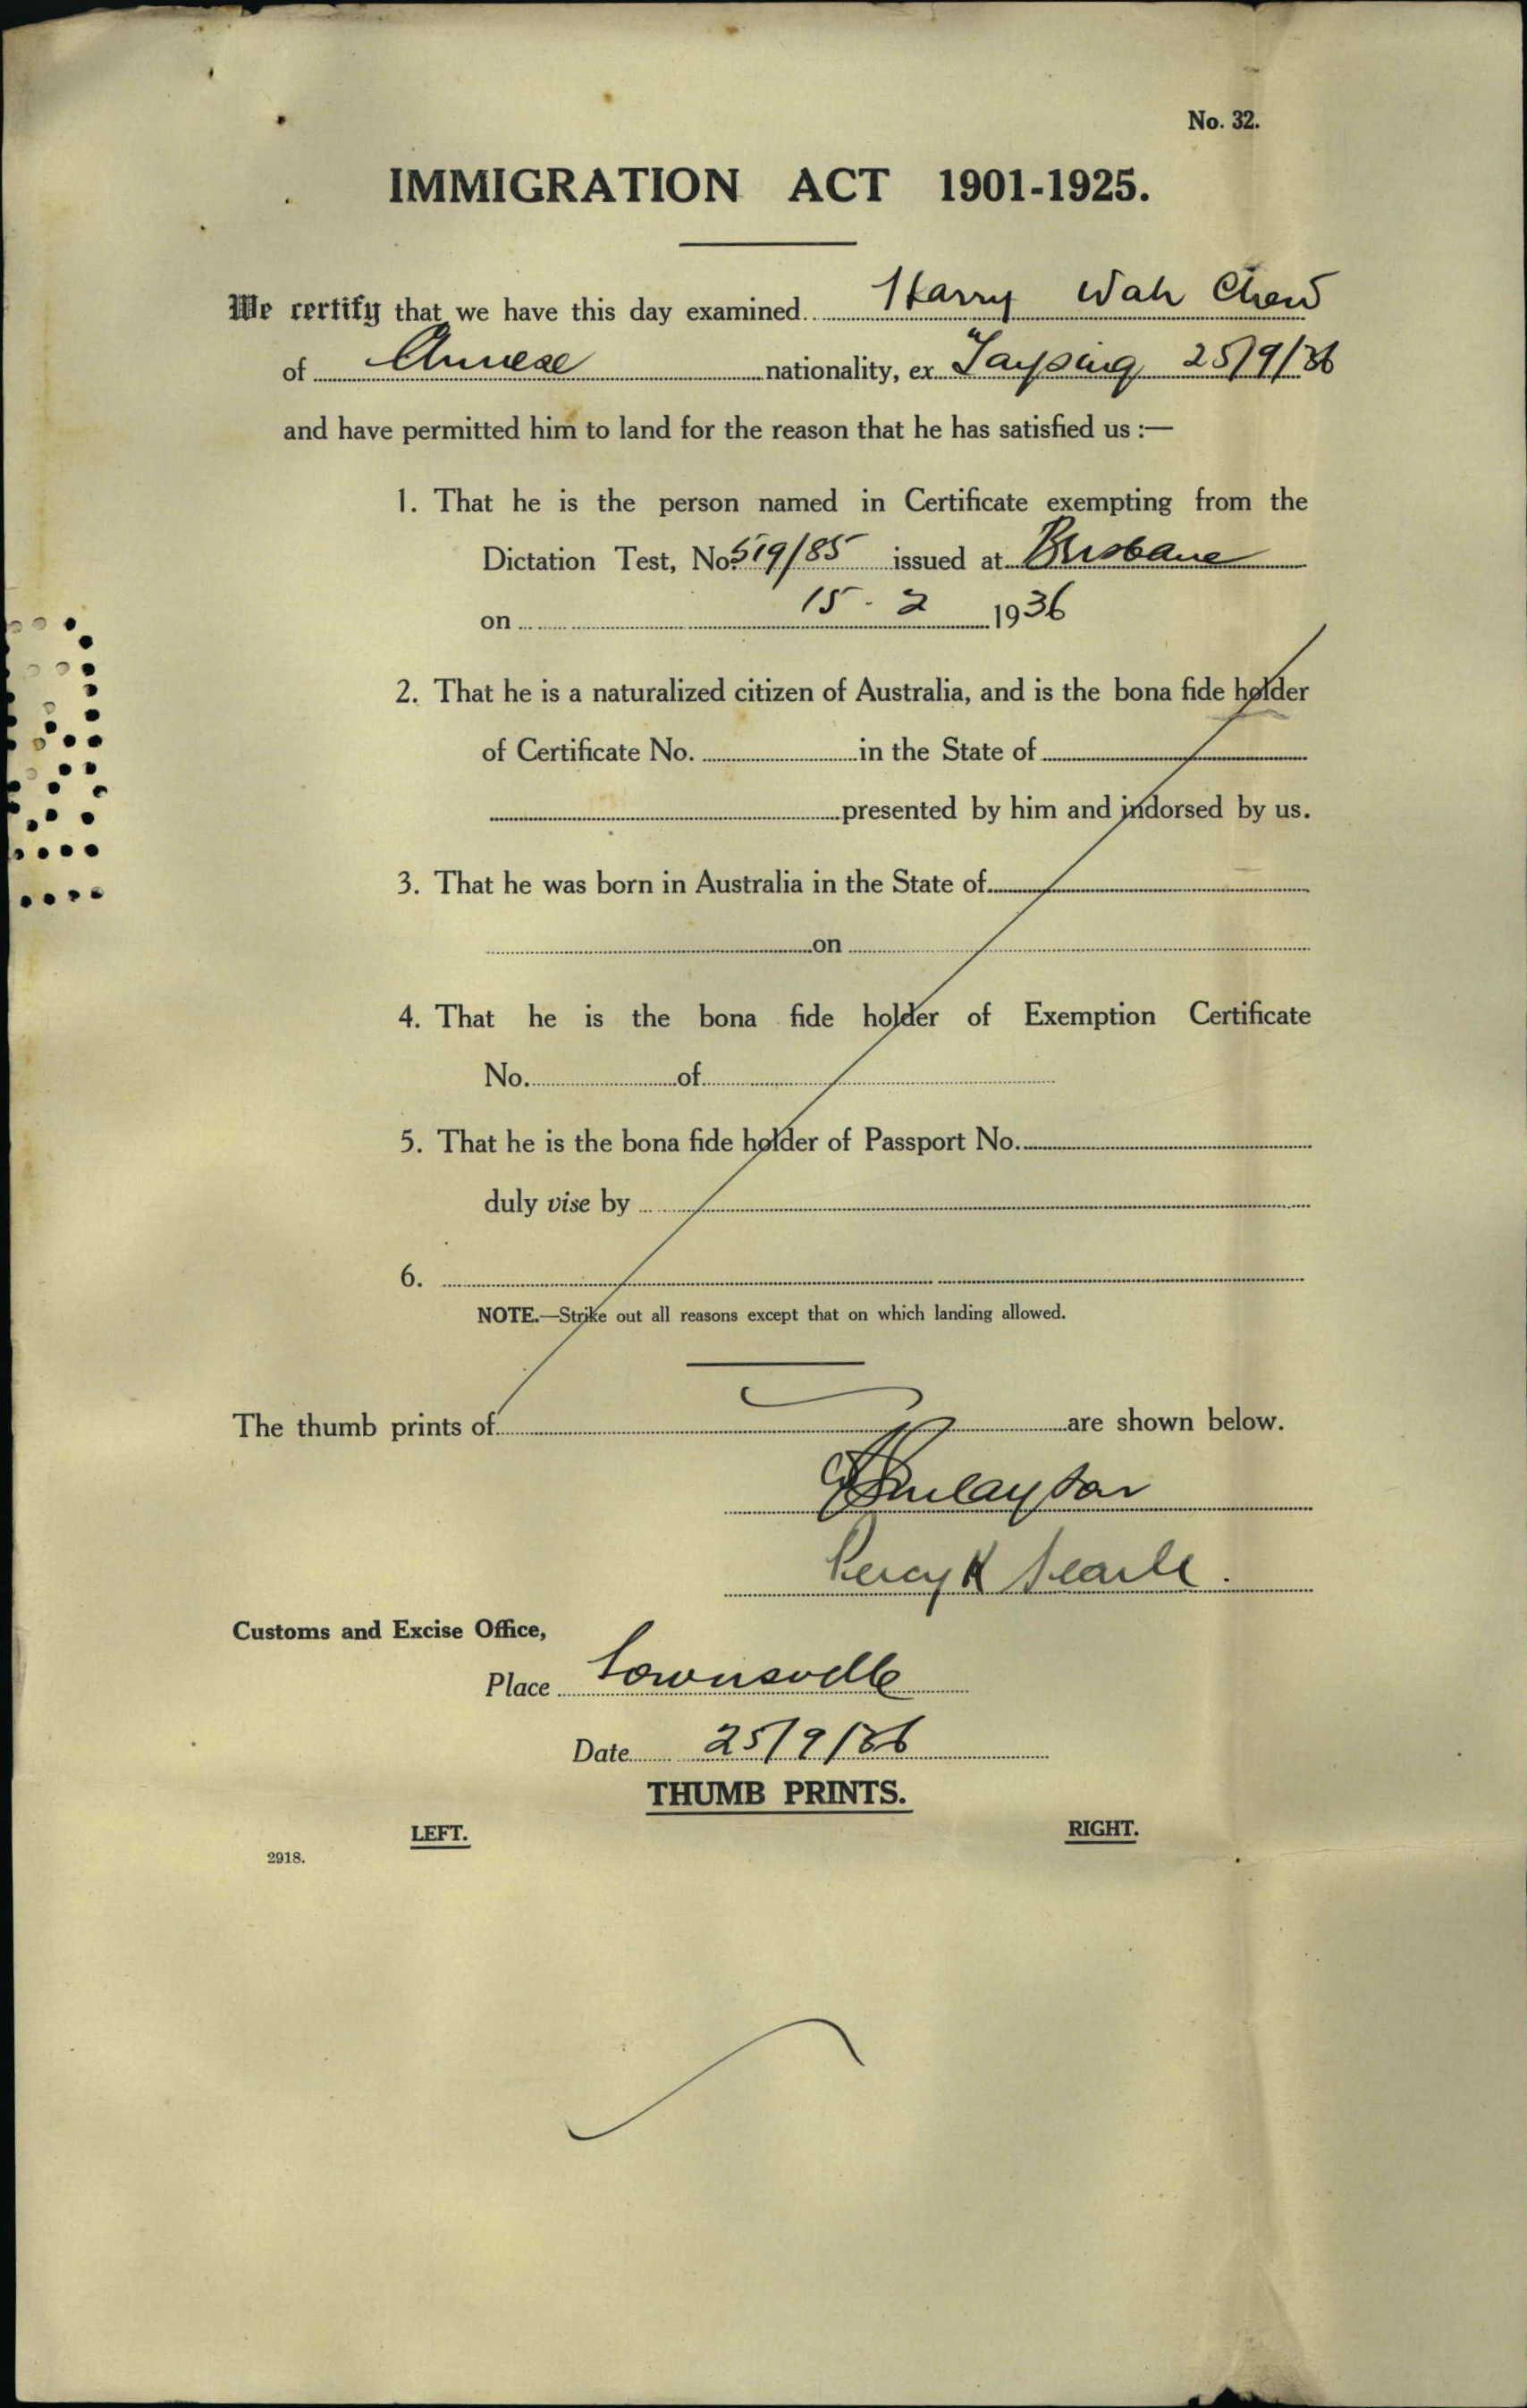 No. 32.
IMMIGRATION ACT 1901-1925.
We certify that we have this day examined Harry Wah Chew
of Chinese nationality, ex Tayping 25/9/36
and have permitted him to land for the reason that he has satisfied us :—
1. That he is the person named in Certificate exempting from the
Dictation Test, No. 519/85 issued at Brisbane
on 15 - 2 1936
2. That he is a naturalized citizen of Australia, and is the bona fide holder
of Certificate No. in the State of
presented by him and indorsed by us.
3. That he was born in Australia in the State of
on
4. That he is the bona fide holder of Exemption Certificate
No. of
5. That he is the bona fide holder of Passport No.
duly vise by
6.
NOTE.—Strike out all reasons except that on which landing allowed.
The thumb prints of are shown below.
Finlayson
Percy K Searle.
Customs and Excise Office,
Place Townsville
Date 25/9/36
THUMB PRINTS.
LEFT. RIGHT.
2918.